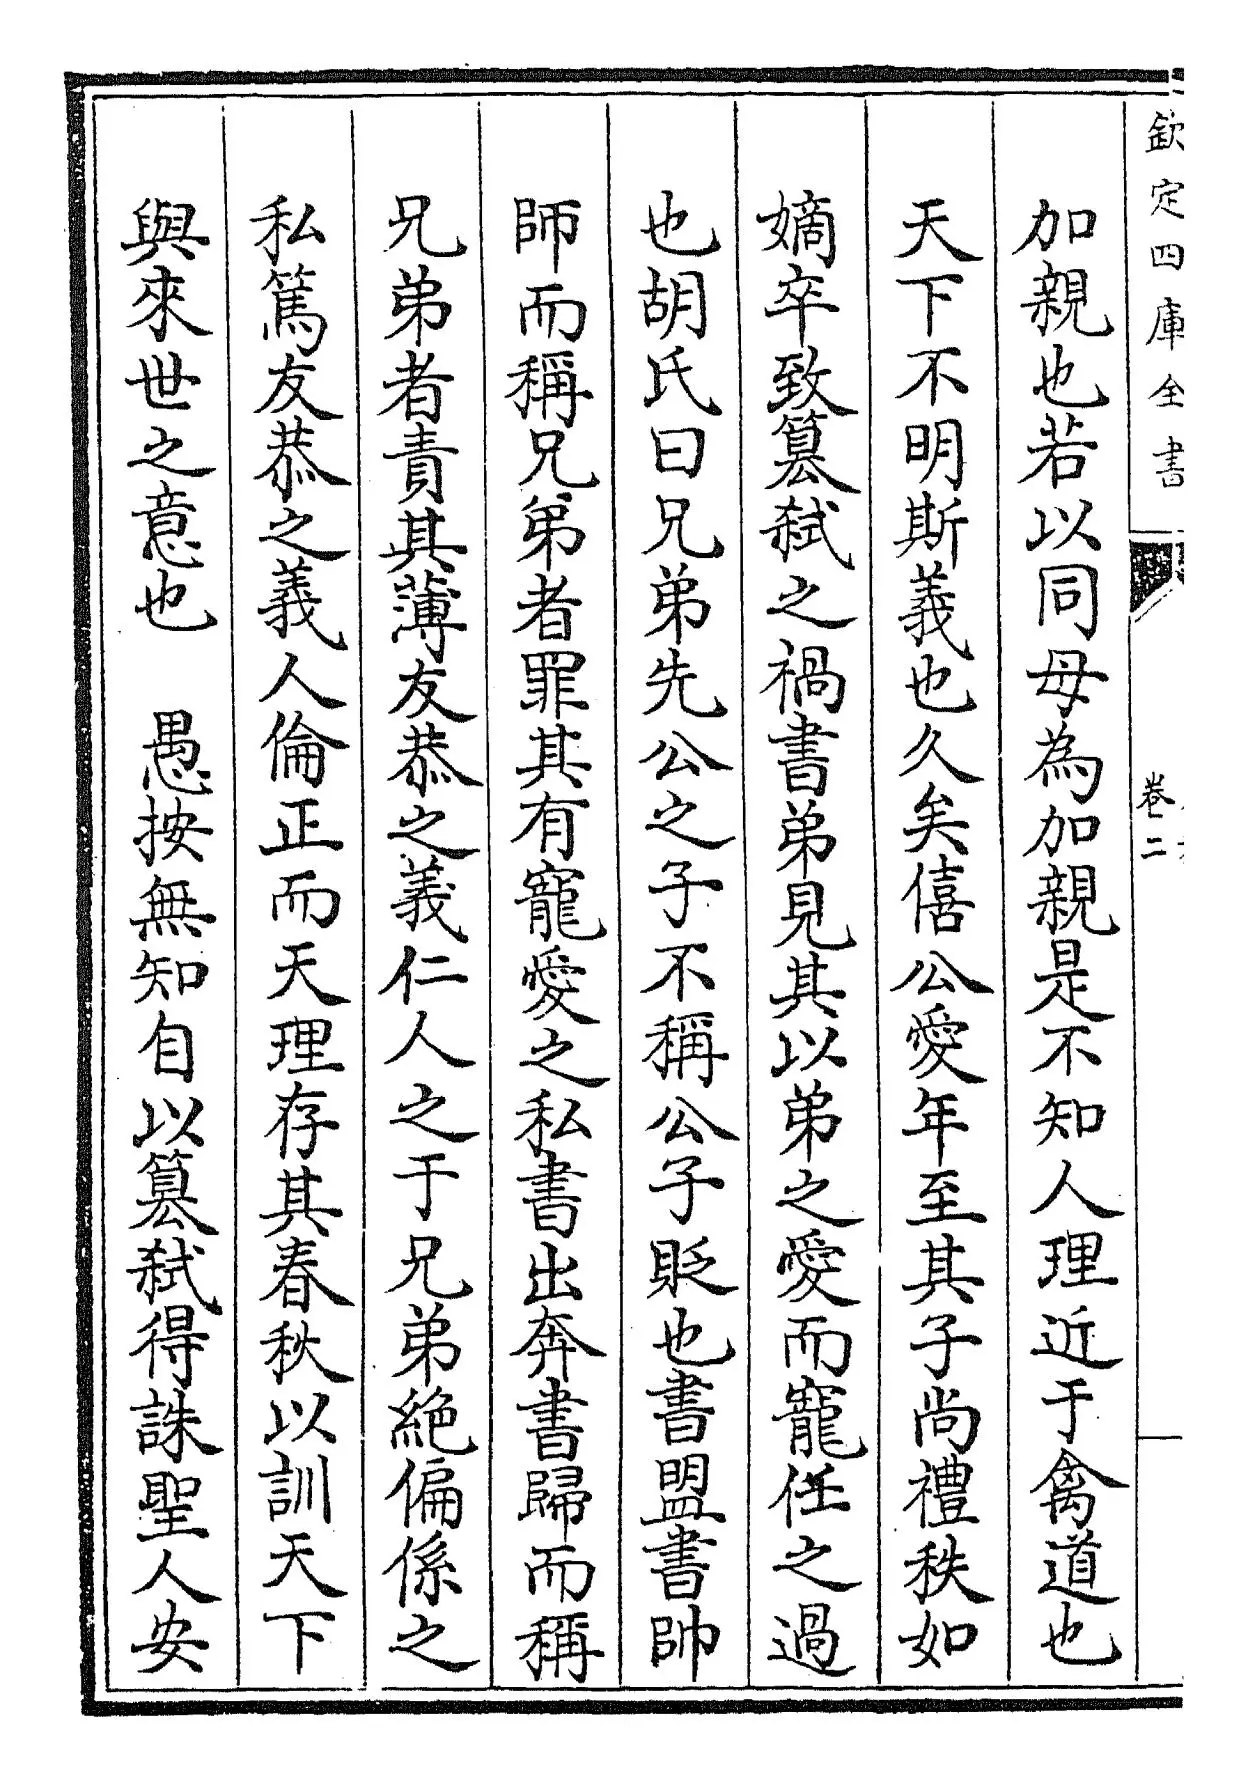 欽定四庫全書
卷二
加親也若以同母為加親是不知人理近于禽道也
天下不明斯義也久矣僖公愛年至其子尚禮秩如
嫡卒致簒弑之禍書弟見其以弟之愛而寵任之過
也胡氏曰兄弟先公之子不稱公子貶也書盟書帥
師而稱兄弟者罪其有寵愛之私書出奔書歸而稱
兄弟者責其薄友恭之義仁人之于兄弟絶偏係之
私篤友恭之義人倫正而天理存其春秋以訓天下
與來世之意也　愚按無知自以簒弑得誅聖人安